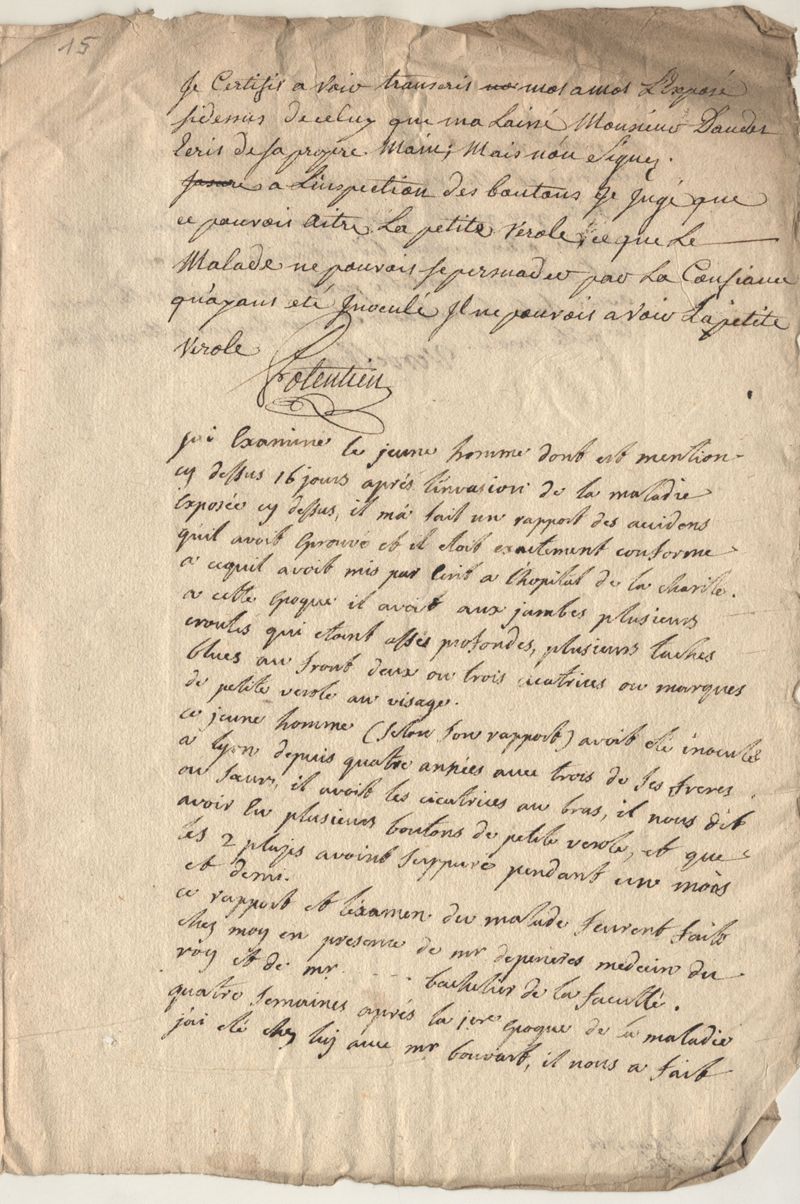 15
Je Certifis avoir transcris mos a mos L'Exposé
sidessus de celuy que ma Laissé Monsieur Daudet
Ecris de sa propre Main; Mais non Signez.
a L'inspection des boutons Je Jugé que
ce pouvois aitre La petite Verole, ce que Le
Malade ne pouvois se persuader par La Confiance
qu'ayans été Jnoculé Jl ne pouvois avoir La petite
Verole
Potentien
jai Examiné le jeune homme dont est mention
cy dessus 16 jours aprés l'invasion de la maladie
Exposée cy dessus, il ma fait un rapport des accidens
quil avoit Eprouvé et il etoit exactement conforme
a cequil avoit mis par Ecrit a l'hopital de la charité.
a cette Epoque il avoit aux jambes plusieurs
croutes qui etant assés profondes, plusieurs taches
blues au front deux ou trois cicatrices ou marques
de petite verole au visage.
ce jeune homme (selon son rapport) avoit eté inoculé
a lyon depuis quatre années avec trois de ses freres
ou sœurs, il avoit les cicatrices au bras, il nous dit
avoir Eu plusieurs boutons de petite verole, et que
les 2 plajes avoint suppuré pendant un mois
et demi.
ce rapport et l'examen du malade feurent faits
chez moy en presence de mr deperieres medecin du
roy et de mr .... bachelier de la faculté.
quatre semaines aprés la 1ere Epoque de la maladie
j'ai eté chez luy avec mr bouvart, il nous a fait